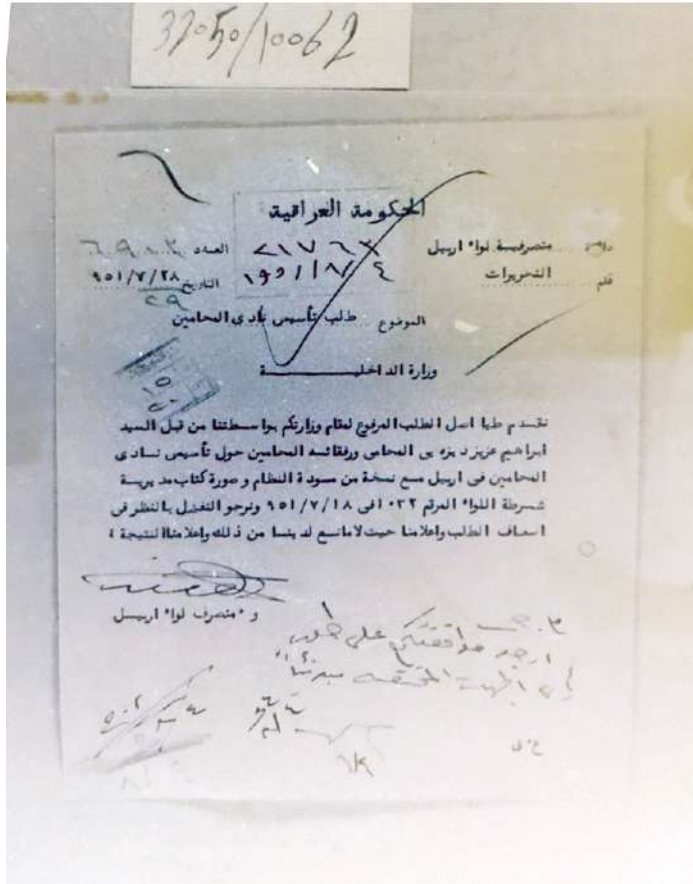 32050/10062
الحكومة العراقية
متصرفية لواء اربيل
العدد ٦٩٠٣
٢١٧٦٣
قلم التحريرات
التاريخ ٩٥١/٧/٢٨
٢٩
١٩٥١/٨/٤
الموضوع طلب تأسيس نادى المحامين
وزارة الداخليـــــــــة
نقدم طيا اصل الطلب المرفوع لمقام وزارتكم بواسطتنا من قبل السيد
ابراهيم عزيز ديزه يى المحامى ورفقائه المحامين حول تأسيس نادى
المحامين فى اربيل مع نسخة من مسودة النظام و صورة كتاب مديرية
شرطة اللواء المرقم ٠٢٢ افى ٩٥١/٧/١٨ ونرجو التفضل بالنظر فى
اسعاف الطلب واعلامنا حيث لامانع لدينا من ذلك واعلامنا النتيجة ؛
و٠متصرف لواء اربيل
ارجو موافقتكم على طلب